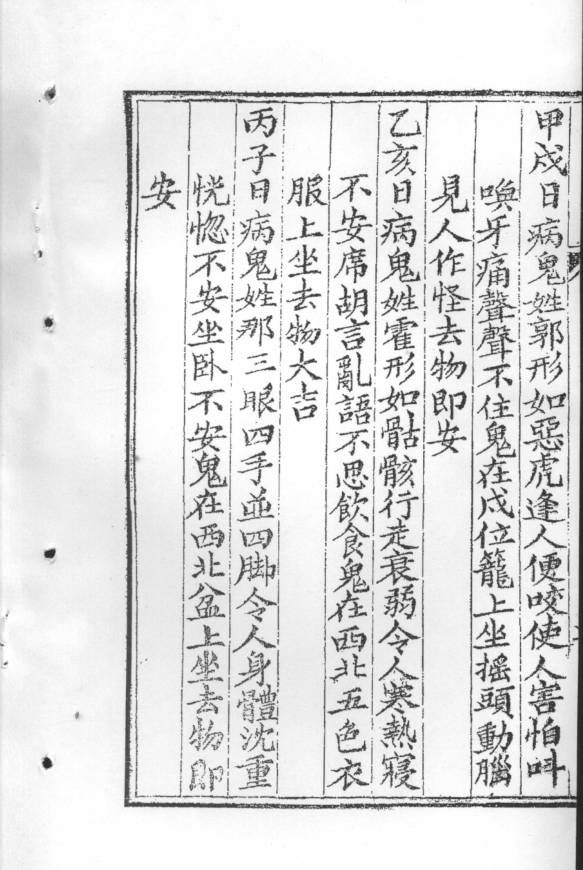 甲戌日病鬼姓郭形如惡虎逢人便咬使人害怕叫
喚牙痛聲聲不住鬼在戌位籠上坐搖頭動腦
見人作怪去物即安
乙亥日病鬼姓霍形如骷骸行走衰弱令人寒熱寢
不安席胡言亂語不思飲食鬼在西北五色衣
服上坐去物大吉
丙子日病鬼姓那三眼四手並四脚令人身體沈重
恍惚不安坐卧不安鬼在西北盆上坐去物即
安